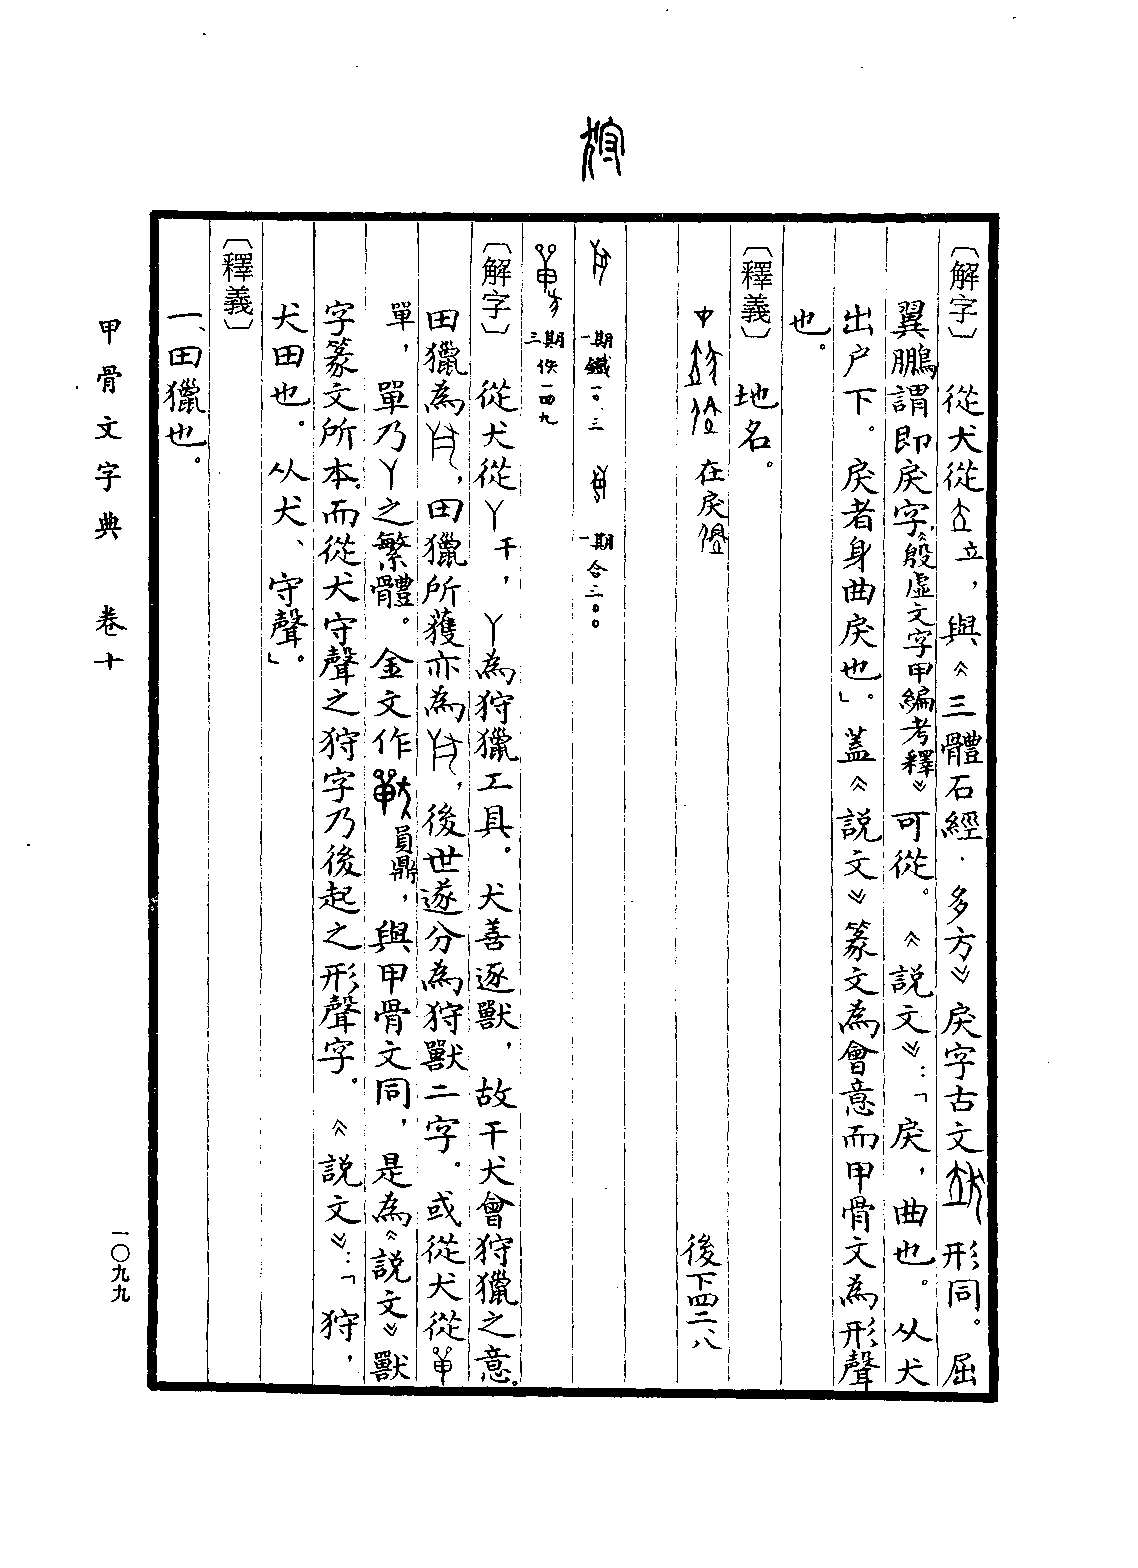 〔解字〕從犬從立,與《三體石經·多方》戾字古文形同。屈
翼鵬謂即戾字,《殷虛文字甲編考釋》可從。《說文》:「戾,曲也。从犬
出户下。戾者身曲戾也」。蓋《說文》篆文為會意而甲骨文為形聲
也。
〔釋義〕地名。
在戾𠊱 後下四二·八
一期鐵一〇·三 一期合三〇〇
三期佚一四九
〔解字〕從犬從丫干,丫為狩獵工具。犬善逐獸,故干犬會狩獵之意。
田獵為,田獵所獲亦為,後世遂分為狩獸二字。或從犬從
單,單乃丫之繁體。金文作員鼎,與甲骨文同,是為《說文》獸
字篆文所本。而從犬守聲之狩字乃後起之形聲字。《說文》:「狩,
犬田也。从犬、守聲。」
〔釋義〕
一、田獵也。
甲骨文字典 卷十
一〇九九